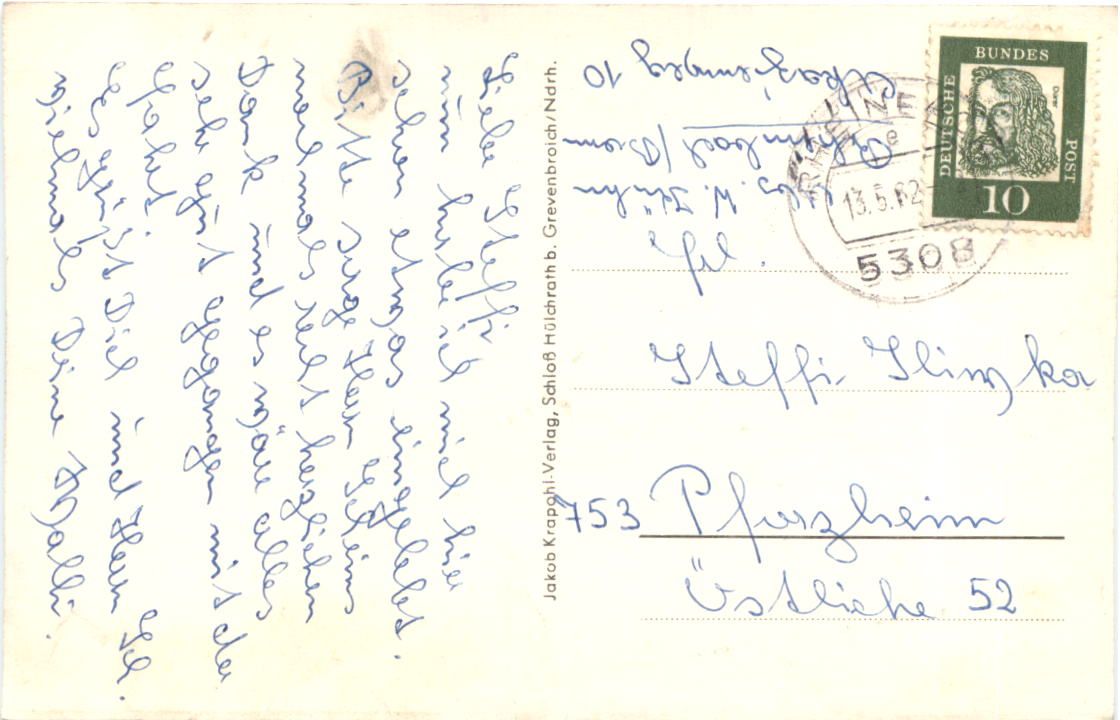 Liebe Steffi
nun habe ich mich hier
schon etwas eingelebt.
Bitte sage Herr
nochmals recht herzlichen
Dank und es wäre alles
sehr gut gegangen mit der
Fahrt.
Es grüßt Dich und Herr
vielmals Deine Walli.
Jakob Krapohl-Verlag, Schloß Hülchrath b. Grevenbroich/Ndrh.
Abs. W.
/Bonn
10
DEUTSCHE
BUNDES
POST
Dürer
10
RHEINBACH
e
13.5.62
5308
Frl.
Steffi
753 Pforzheim
Östliche 52